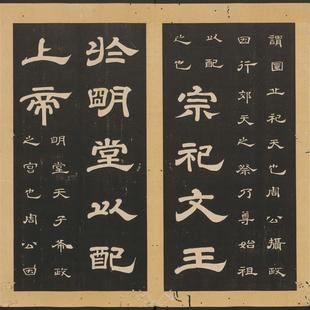 謂圜丘祀天也周公攝政
因行郊天之祭乃尊始祖
以配
之也
宗祀文王
於明堂以配
上帝
明堂天子布政
之宮也周公因